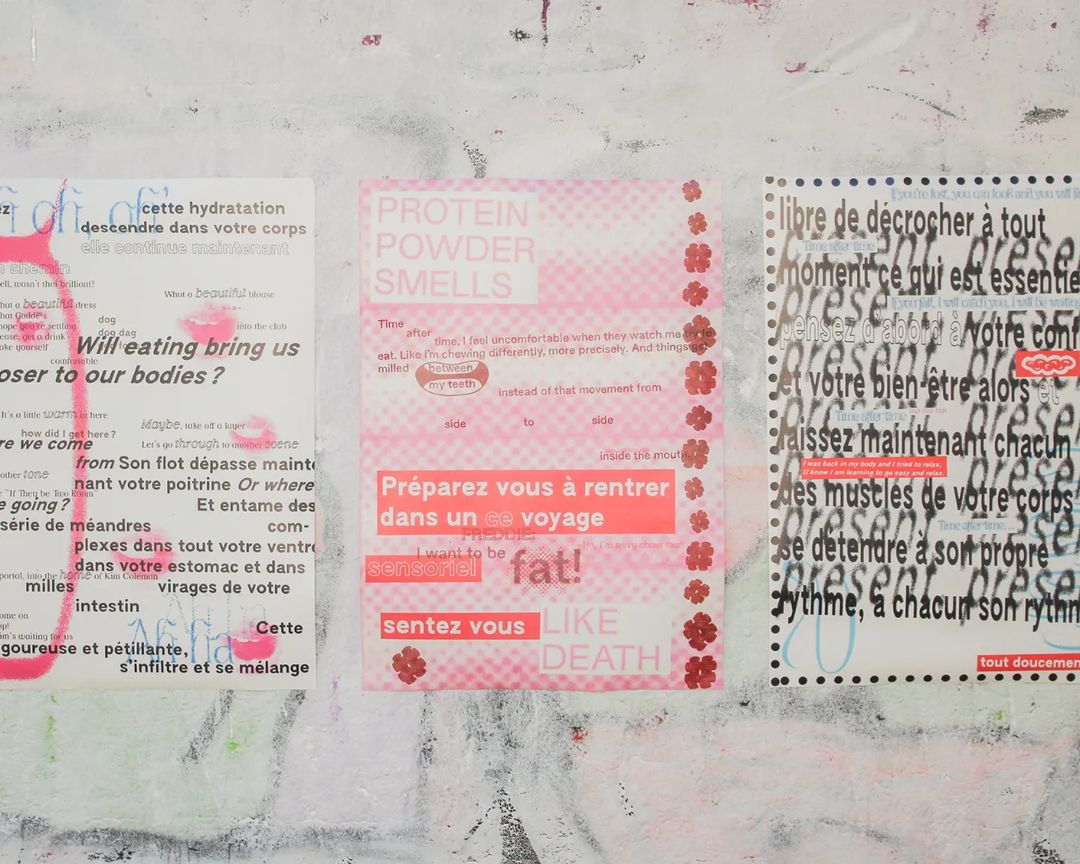 oh, oh'
cette hydratation
descendre dans votre corps
elle continue maintenant
chemin
well, wasn't that brilliant?
What a beautiful blouse
what a beautiful dress
dog
dog dag
into the club
settling
get a drink
make yourself
comfortable
Will eating bring us
oser to our bodies?
It's a little warm in here
Maybe, take off a layer
how did I get here?
re we come
Let's go through to another scene
from Son flot dépasse mainte
other tone
nant votre poitrine Or where
"If They be Too Room"
e going?
Et entame des
série de méandres
com-
plexes dans tout votre ventre
dans votre estomac et dans
portal, into the home of Kim Coleman
milles
virages de votre
intestin
come on
Ah ha
Cette
im's waiting for us
goureuse et pétillante,
s'infiltre et se mélange
PROTEIN
POWDER
SMELLS
Time
after
time, I feel uncomfortable when they watch me try to
eat. Like I'm chewing differently, more precisely. And things get
milled
between
my teeth
instead of that movement from
side
to
side
inside the mouth
Préparez vous à rentrer
dans un ce voyage
FREDDIE:
I want to be
fat!
-Ho, i'm sorry about that
sensoriel
sentez vous
LIKE
DEATH
If you're lost, you can look and you will fi
libre de décrocher à tout
Time after time
moment ce qui est essentie
If you fall, I will catch you, I will be waiting
pensez d'abord à votre conf
et votre bien-être alors et
Time after time
laissez maintenant chacun
I was back in my body and I tried to relax,
U know I am learning to go easy and relax.
des muscles de votre corps
Time after time...
se détendre à son propre
rythme, à chacun son rythm
present present
present
present
present
present
present
tout doucemen